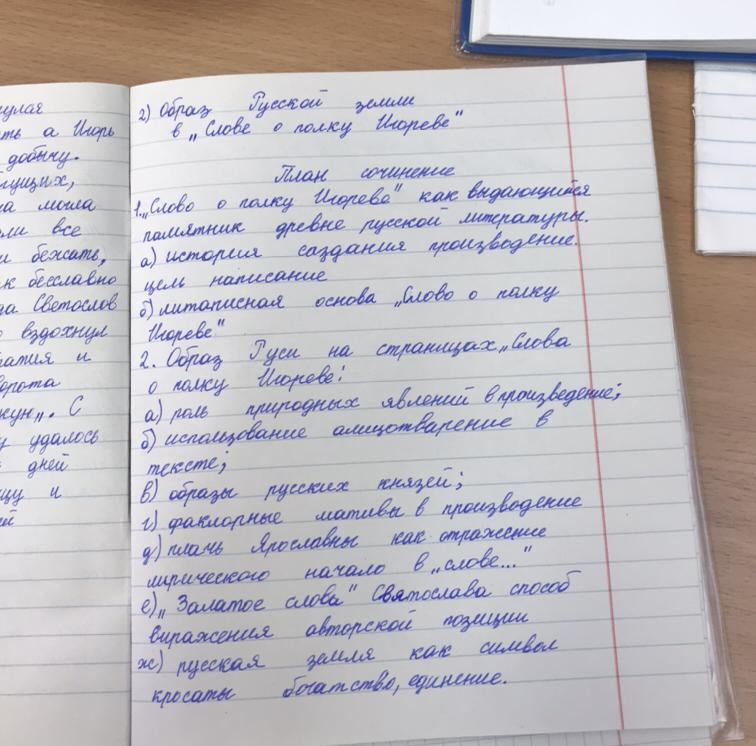 нулая
ть а Игорь
добычу.
гущих,
на могла
ли все
и бежать,
к бесславно
да Светослов
вздохнул
атия и
ворота
кун". С
у удалось
дней
щу и
ий
2) Образ Русской земли
в „Слове о полку Игореве"
План сочинение
1. „Слово о полку Игореве" как выдающийся
памятник древне русской литературы.
а) история создания произведение.
цель написание
б) литописная основа „Слово о полку
Игореве"
2. Образ Руси на страницах „Слова
о полку Игореве:
а) роль природных явлений в произведение;
б) использование алицотварение в
тексте;
в) образы русских князей;
г) факлорные мативы в произведение
д) плачь Ярославны как отражение
лирического начало в „слове..."
е) „Залатое слова" Святослава способ
выражения авторской позиции
ж) русская земля как символ
кросаты богатство, единение.